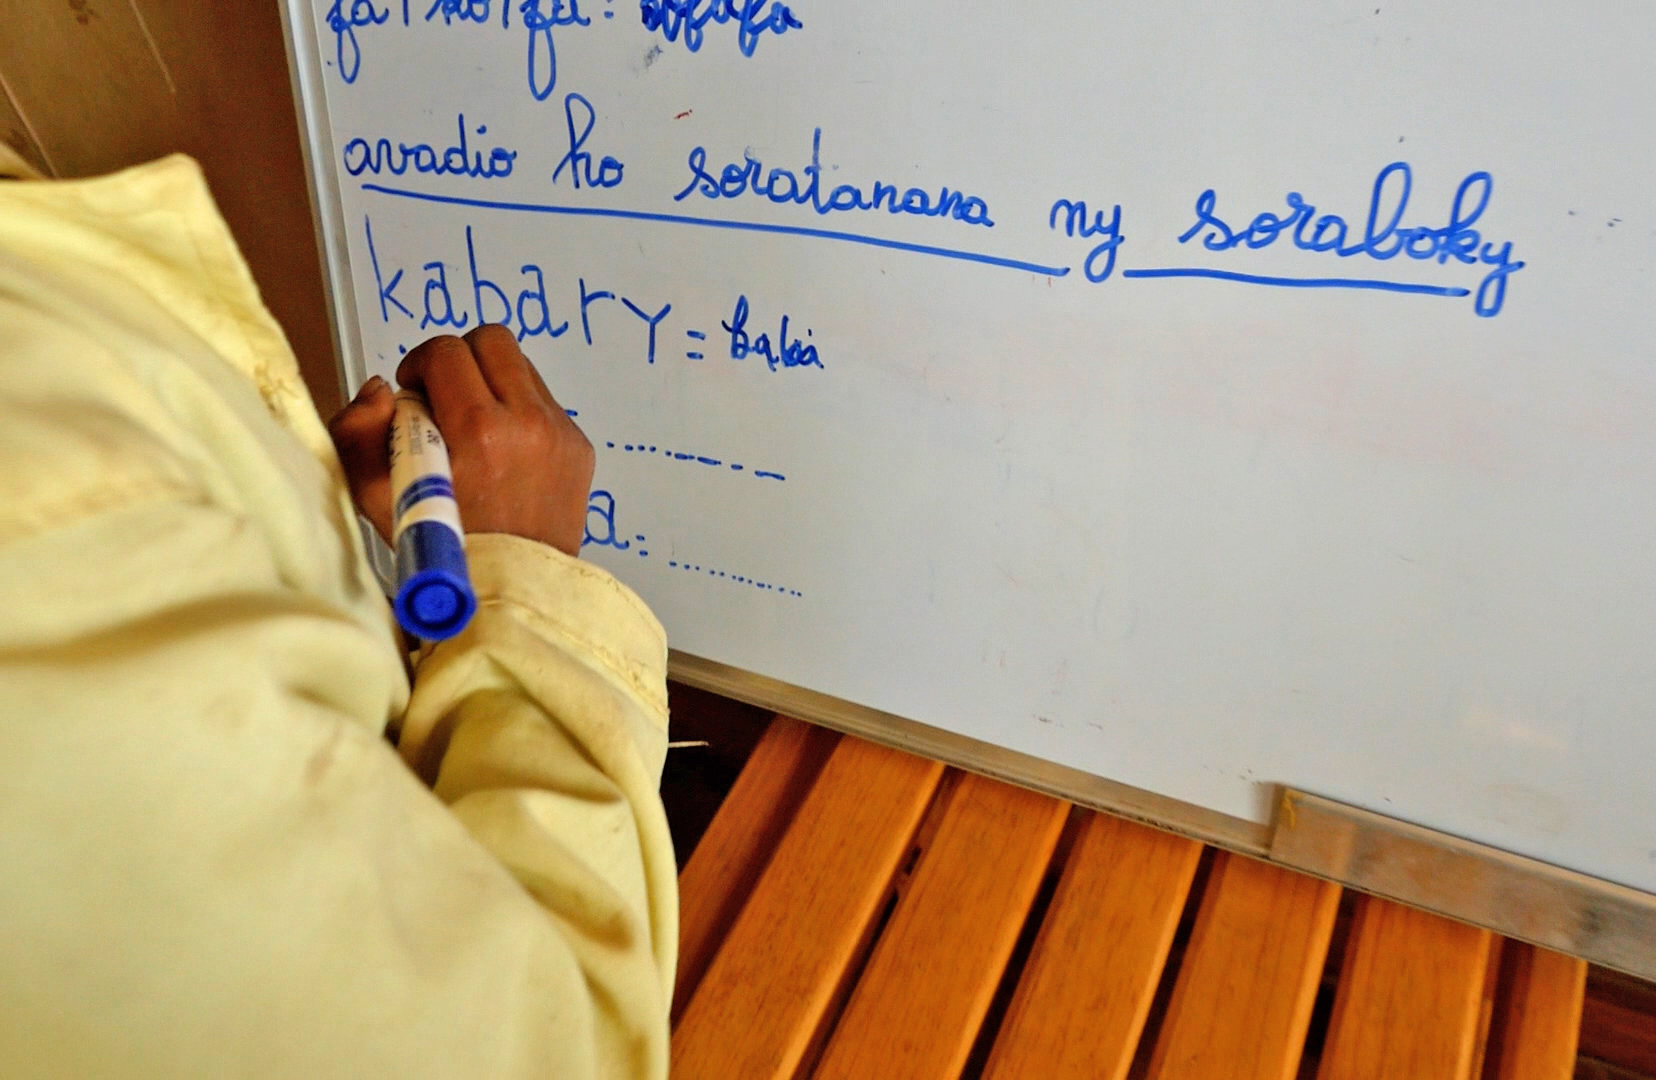 fa/ko/fa:
avadio ho soratanana ny soraboky
kabary = baba
a: